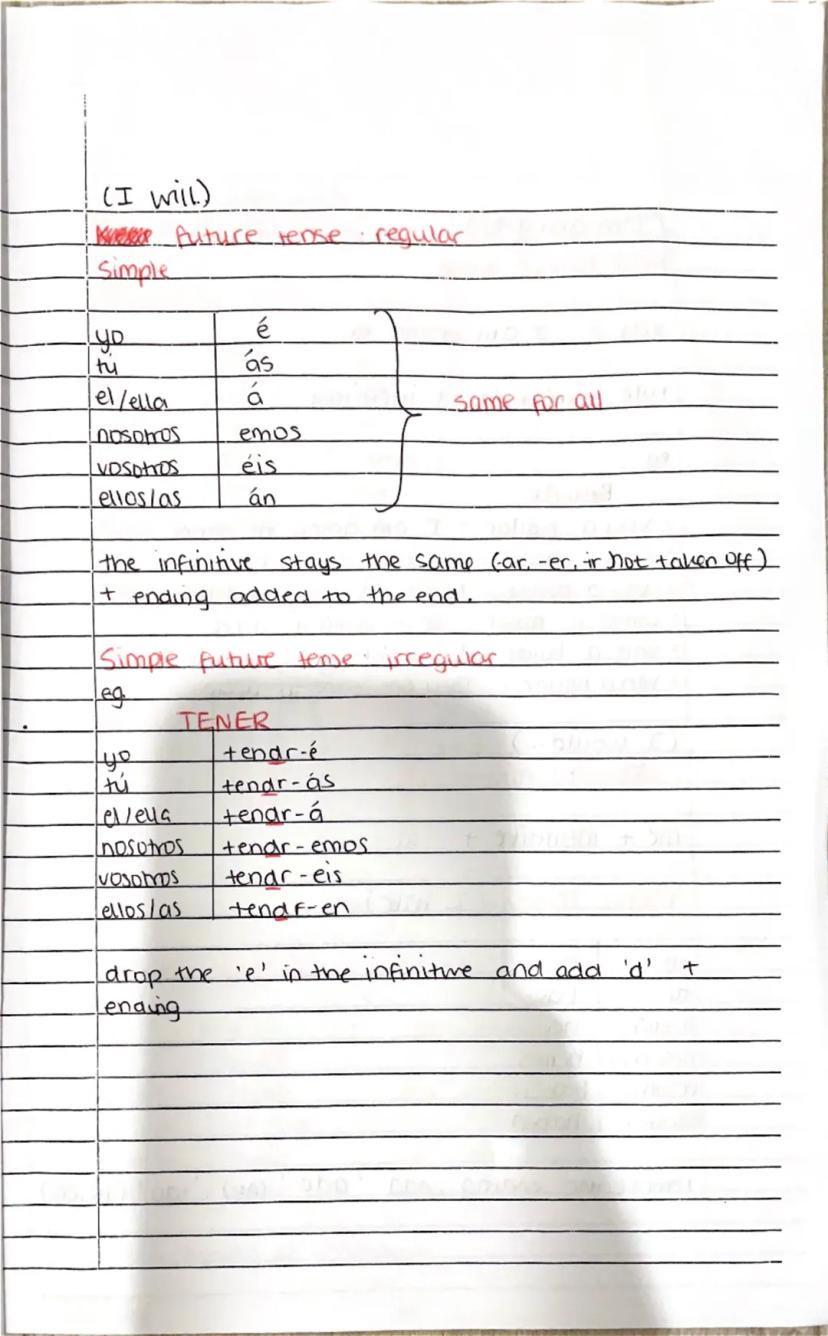 (I will)
future tense : regular
Simple
yo é
tú ás
el/ella á
nosotros emos
vosotros éis
ellos/as án
same for all
the infinitive stays the same (-ar, -er, -ir not taken off)
+ ending added to the end.
Simple future tense : irregular
eg.
TENER
yo tendr-é
tú tendr-ás
el/ella tendr-á
nosotros tendr-emos
vosotros tendr-eis
ellos/as tendr-en
drop the 'e' in the infinitive and add 'd' +
ending